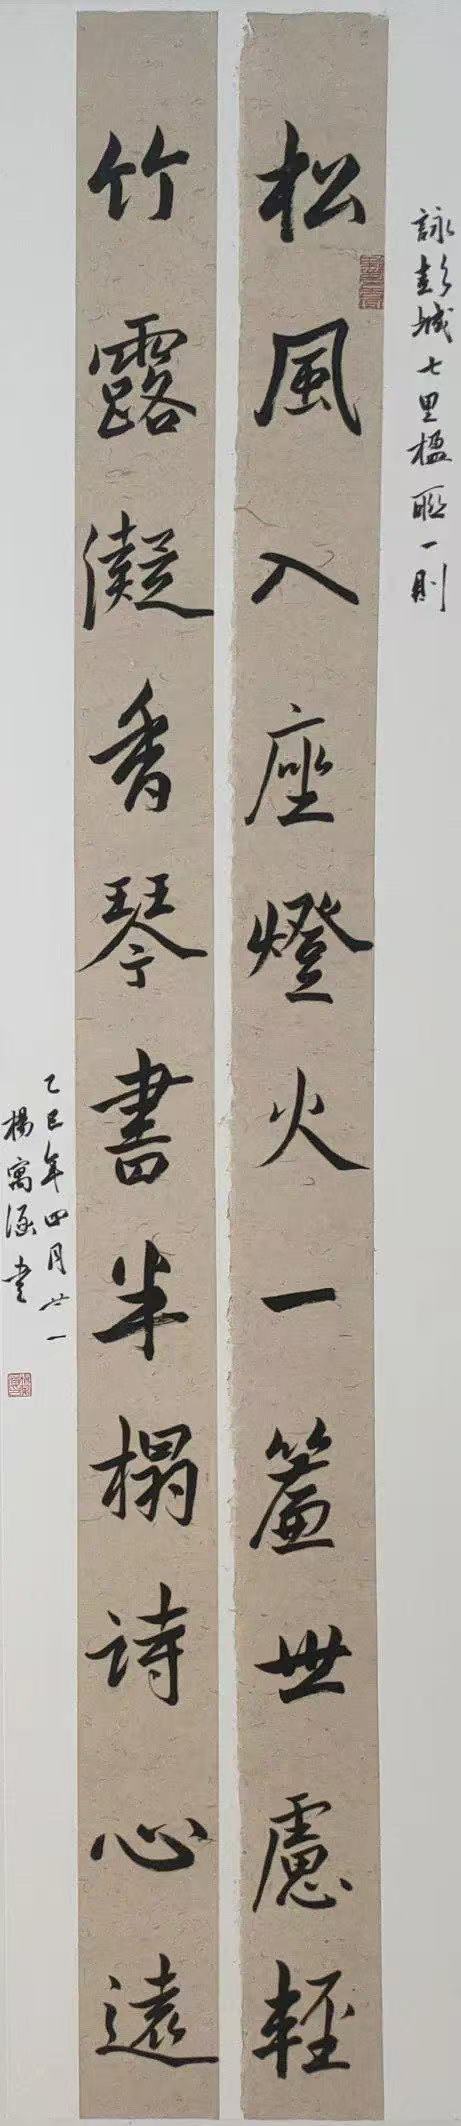 詠彭城七里楹聯一則
松風入座燈火一簾世慮輕
竹露凝香琴書半榻詩心遠
乙巳年四月廿一
楊寓涵書